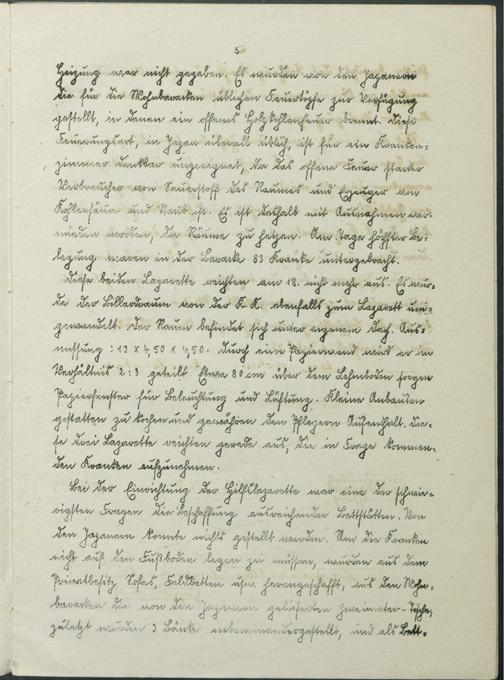 5
Heizung war nicht gegeben. Es wurden von den Japanern
die für die Wohnbaracken üblichen Feuertöpfe zur Verfügung
gestellt, in denen ein offenes Holzkohlenfeuer brennt. Diese
Feuerungsart, in Japan überall üblich, ist für ein Kranken-
zimmer denkbar ungeeignet, da das offene Feuer starker
Verbraucher von Sauerstoff des Raumes und Erzeuger von
Kohlensäure und Staub ist. Es ist deshalb mit Ausnahmen ver-
mieden worden, die Räume zu heizen. Am Tage höchster Be-
legung waren in der Baracke 83 Kranke untergebracht.
Diese beiden Lazarette reichten am 18. nicht mehr aus. Es wur-
de der Billardraum von der K.K. ebenfalls zum Lazarett um-
gewandelt. Der Raum befindet sich unter eigenem Dach. Aus-
messung: 13 x 4,50 x 4,50. Durch eine Papierwand wird er im
Verhältnis 2:3 geteilt. Etwa 80 cm über dem Lehmboden sorgen
Papierfenster für Beleuchtung und Lüftung. Kleine Anbauten
gestatten zu kochen und gewähren den Pflegern Aufenthalt. Die-
se drei Lazarette reichten gerade aus, die in Frage kommen-
den Kranken aufzunehmen.
Bei der Einrichtung der Hilfslazarette war eine der schwie-
rigsten Fragen die Beschaffung ausreichender Bettstätten. Von
den Japanern konnte nichts gestellt werden. Um die Kranken
nicht auf den Fußboden legen zu müssen, wurden aus dem
Privatbesitz Sofas, Feldbetten usw. herangeschafft, aus den Wohn-
baracken die von den Japanern gelieferten zweimeter-Tische,
zuletzt wurden 3 Bänke nebeneinandergestellt, und als Bett-